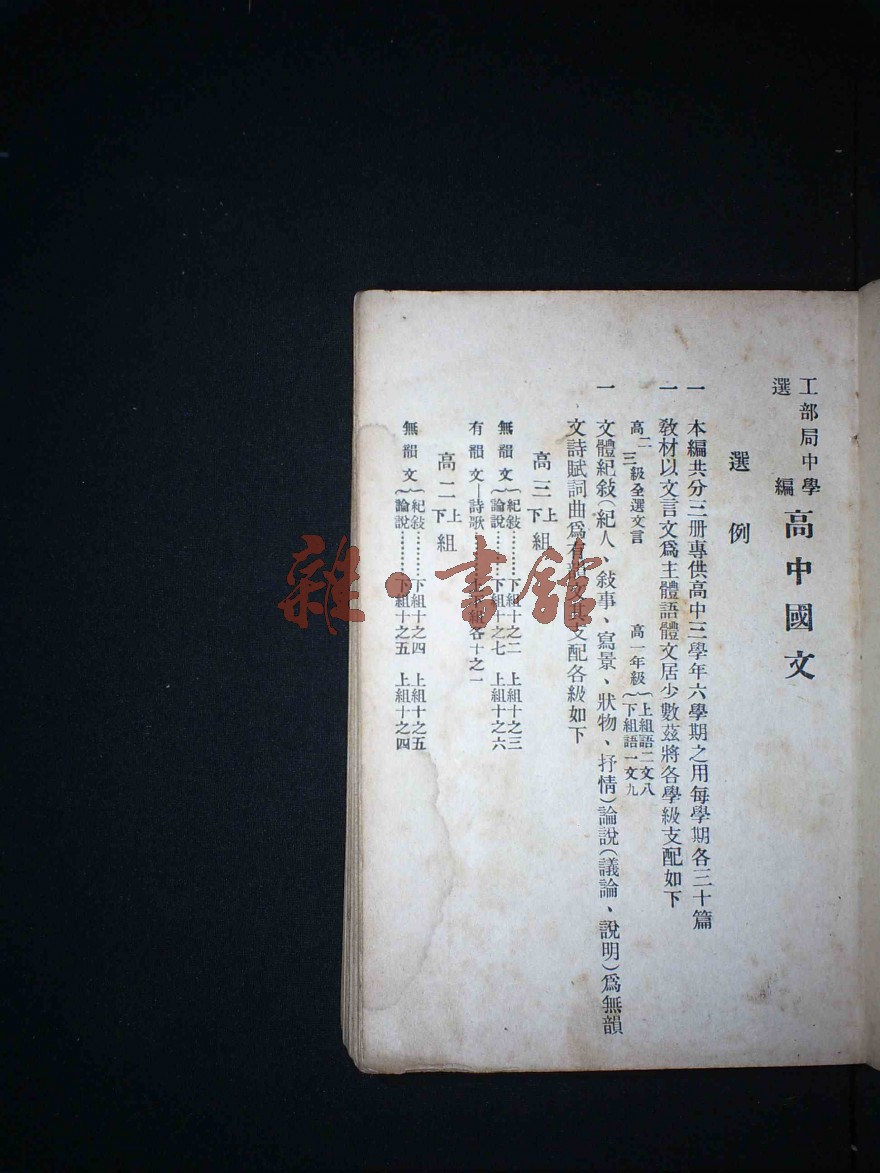 工部局中學
選編高中國文
選例
一 本編共分三册專供高中三學年六學期之用每學期各三十篇
一 教材以文言文爲主體語體文居少數茲將各學級支配如下
高二三級全選文言 高一年級{上組語二文八
下組語一文九
一 文體紀敍(紀人、敍事、寫景、狀物、抒情)論說(議論、說明)爲無韻
文詩賦詞曲爲有韻文其支配各級如下
高三上下組
無韻文{紀敍………下組十之二 上組十之三
論說………下組十之七 上組十之六
有韻文—詩歌………組各十之一
高二上下組
無韻文{紀敍………下組十之四 上組十之五
論說………下組十之五 上組十之四
雜·書館